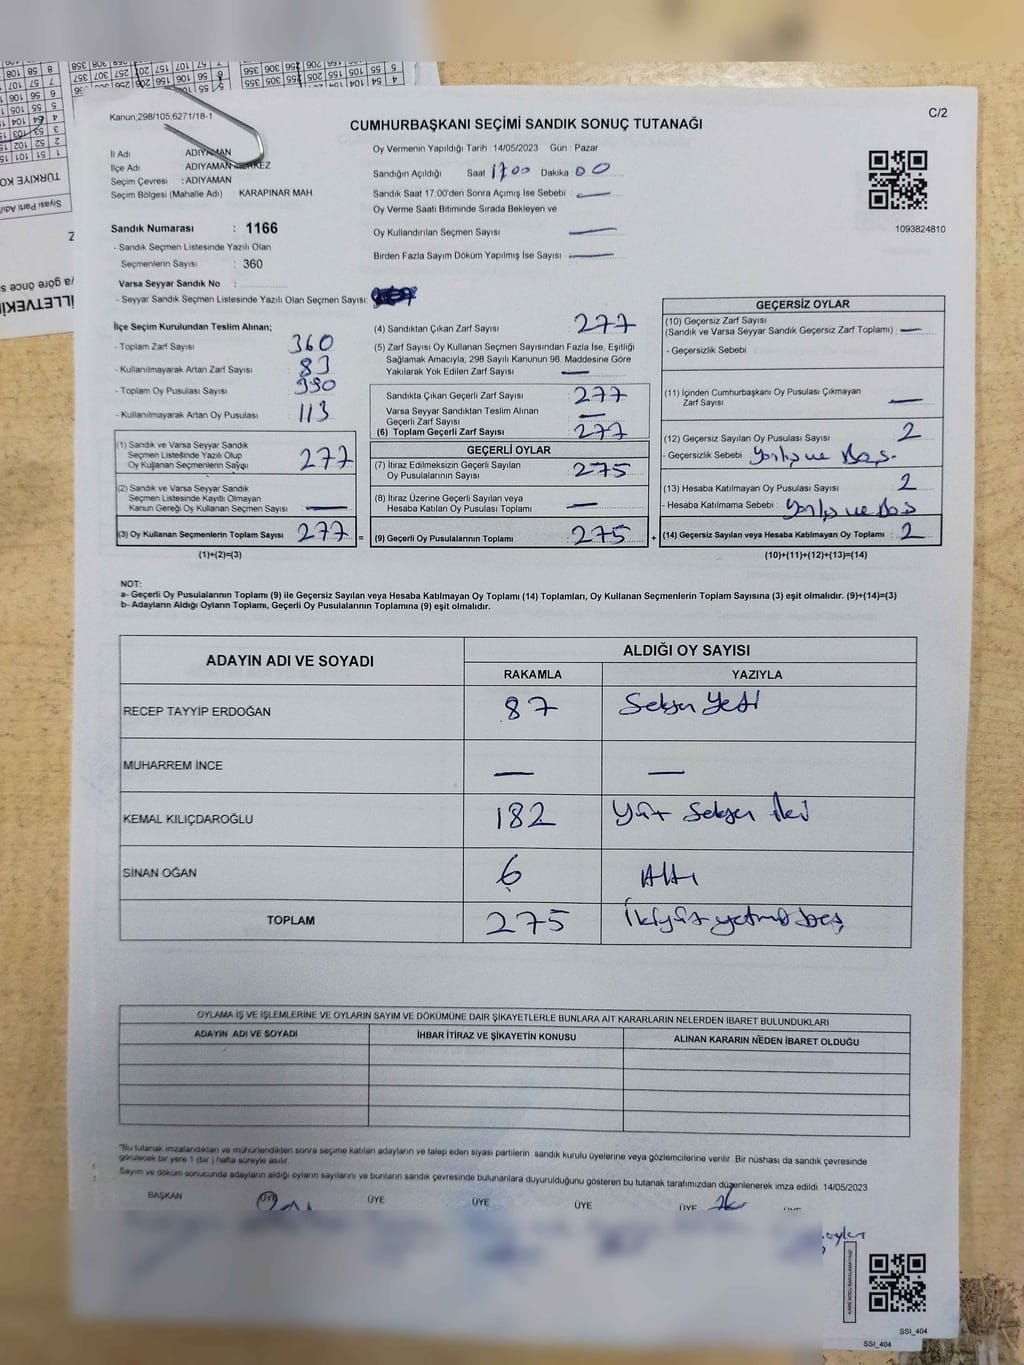 Kanun,298/105,6271/18-1
C/2
CUMHURBAŞKANI SEÇİMİ SANDIK SONUÇ TUTANAĞI
İl Adı ADIYAMAN
İlçe Adı ADIYAMAN MERKEZ
Seçim Çevresi : ADIYAMAN
Seçim Bölgesi (Mahalle Adı) : KARAPINAR MAH.
Sandık Numarası : 1166
- Sandık Seçmen Listesinde Yazılı Olan
Seçmenlerin Sayısı : 360
Varsa Seyyar Sandık No :
- Seyyar Sandık Seçmen Listesinde Yazılı Olan Seçmen Sayısı:
Oy Vermenin Yapıldığı Tarih : 14/05/2023 Gün : Pazar
Sandığın Açıldığı Saat 17:00 Dakika: 00
Sandık Saat 17:00'den Sonra Açımış İse Sebebi : —
Oy Verme Saati Bitiminde Sırada Bekleyen ve
Oy Kullandırılan Seçmen Sayısı —
Birden Fazla Sayım Döküm Yapılmış İse Sayısı —
1093824810
İlçe Seçim Kurulundan Teslim Alınan;
- Toplam Zarf Sayısı 360
- Kullanılmayarak Artan Zarf Sayısı 83
- Toplam Oy Pusulası Sayısı 390
- Kullanılmayarak Artan Oy Pusulası 113
(1) Sandık ve Varsa Seyyar Sandık
Seçmen Listesinde Yazılı Olup
Oy Kullanan Seçmenlerin Sayısı 277
(2) Sandık ve Varsa Seyyar Sandık
Seçmen Listesinde Kayıtlı Olmayan
Kanun Gereği Oy Kullanan Seçmen Sayısı —
(3) Oy Kullanan Seçmenlerin Toplam Sayısı 277 =
(1)+(2)=(3)
(4) Sandıktan Çıkan Zarf Sayısı : 277
(5) Zarf Sayısı Oy Kullanan Seçmen Sayısından Fazla İse, Eşitliği
Sağlamak Amacıyla; 298 Sayılı Kanunun 98. Maddesine Göre
Yakılarak Yok Edilen Zarf Sayısı —
Sandıkta Çıkan Geçerli Zarf Sayısı : 277
Varsa Seyyar Sandıktan Teslim Alınan
Geçerli Zarf Sayısı : —
(6) Toplam Geçerli Zarf Sayısı : 277
GEÇERLİ OYLAR
(7) İtiraz Edilmeksizin Geçerli Sayılan
Oy Pusulalarının Sayısı : 275
(8) İtiraz Üzerine Geçerli Sayılan veya
Hesaba Katılan Oy Pusulası Toplamı : —
(9) Geçerli Oy Pusulalarının Toplamı : 275 +
GEÇERSİZ OYLAR
(10) Geçersiz Zarf Sayısı
(Sandık ve Varsa Seyyar Sandık Geçersiz Zarf Toplamı) : —
- Geçersizlik Sebebi :
(11) İçinden Cumhurbaşkanı Oy Pusulası Çıkmayan
Zarf Sayısı : —
(12) Geçersiz Sayılan Oy Pusulası Sayısı : 2
- Geçersizlik Sebebi :
(13) Hesaba Katılmayan Oy Pusulası Sayısı : 2
- Hesaba Katılmama Sebebi :
(14) Geçersiz Sayılan veya Hesaba Katılmayan Oy Toplamı : 2
(10)+(11)+(12)+(13)=(14)
NOT:
a- Geçerli Oy Pusulalarının Toplamı (9) ile Geçersiz Sayılan veya Hesaba Katılmayan Oy Toplamı (14) Toplamları, Oy Kullanan Seçmenlerin Toplam Sayısına (3) eşit olmalıdır. (9)+(14)=(3)
b- Adayların Aldığı Oyların Toplamı, Geçerli Oy Pusulalarının Toplamına (9) eşit olmalıdır.
ADAYIN ADI VE SOYADI
ALDIĞI OY SAYISI
RAKAMLA YAZIYLA
RECEP TAYYİP ERDOĞAN 87 Seksen Yedi
MUHARREM İNCE — —
KEMAL KILIÇDAROĞLU 182 Yüz Seksen İki
SİNAN OĞAN 6 Altı
TOPLAM 275 İkiyüz yetmiş beş
OYLAMA İŞ VE İŞLEMLERİNE VE OYLARIN SAYIM VE DÖKÜMÜNE DAİR ŞİKAYETLERLE BUNLARA AİT KARARLARIN NELERDEN İBARET BULUNDUKLARI
ADAYIN ADI VE SOYADI İHBAR İTİRAZ VE ŞİKAYETİN KONUSU ALINAN KARARIN NEDEN İBARET OLDUĞU
*Bu tutanak imzalandıktan ve mühürlendikten sonra seçime katılan adayların ve talep eden siyasi partilerin sandık kurulu üyelerine veya gözlemcilerine verilir. Bir nüshası da sandık çevresinde
görülecek bir yere 1 (bir ) hafta süreyle asılır.
Sayım ve döküm sonucunda adayların aldığı oyların sayılarını ve bunların sandık çevresinde bulunanlara duyurulduğunu gösteren bu tutanak tarafımızdan düzenlenerek imza edildi. 14/05/2023
BAŞKAN ÜYE ÜYE ÜYE ÜYE ÜYE ÜYE
SSI_404
SSI_404